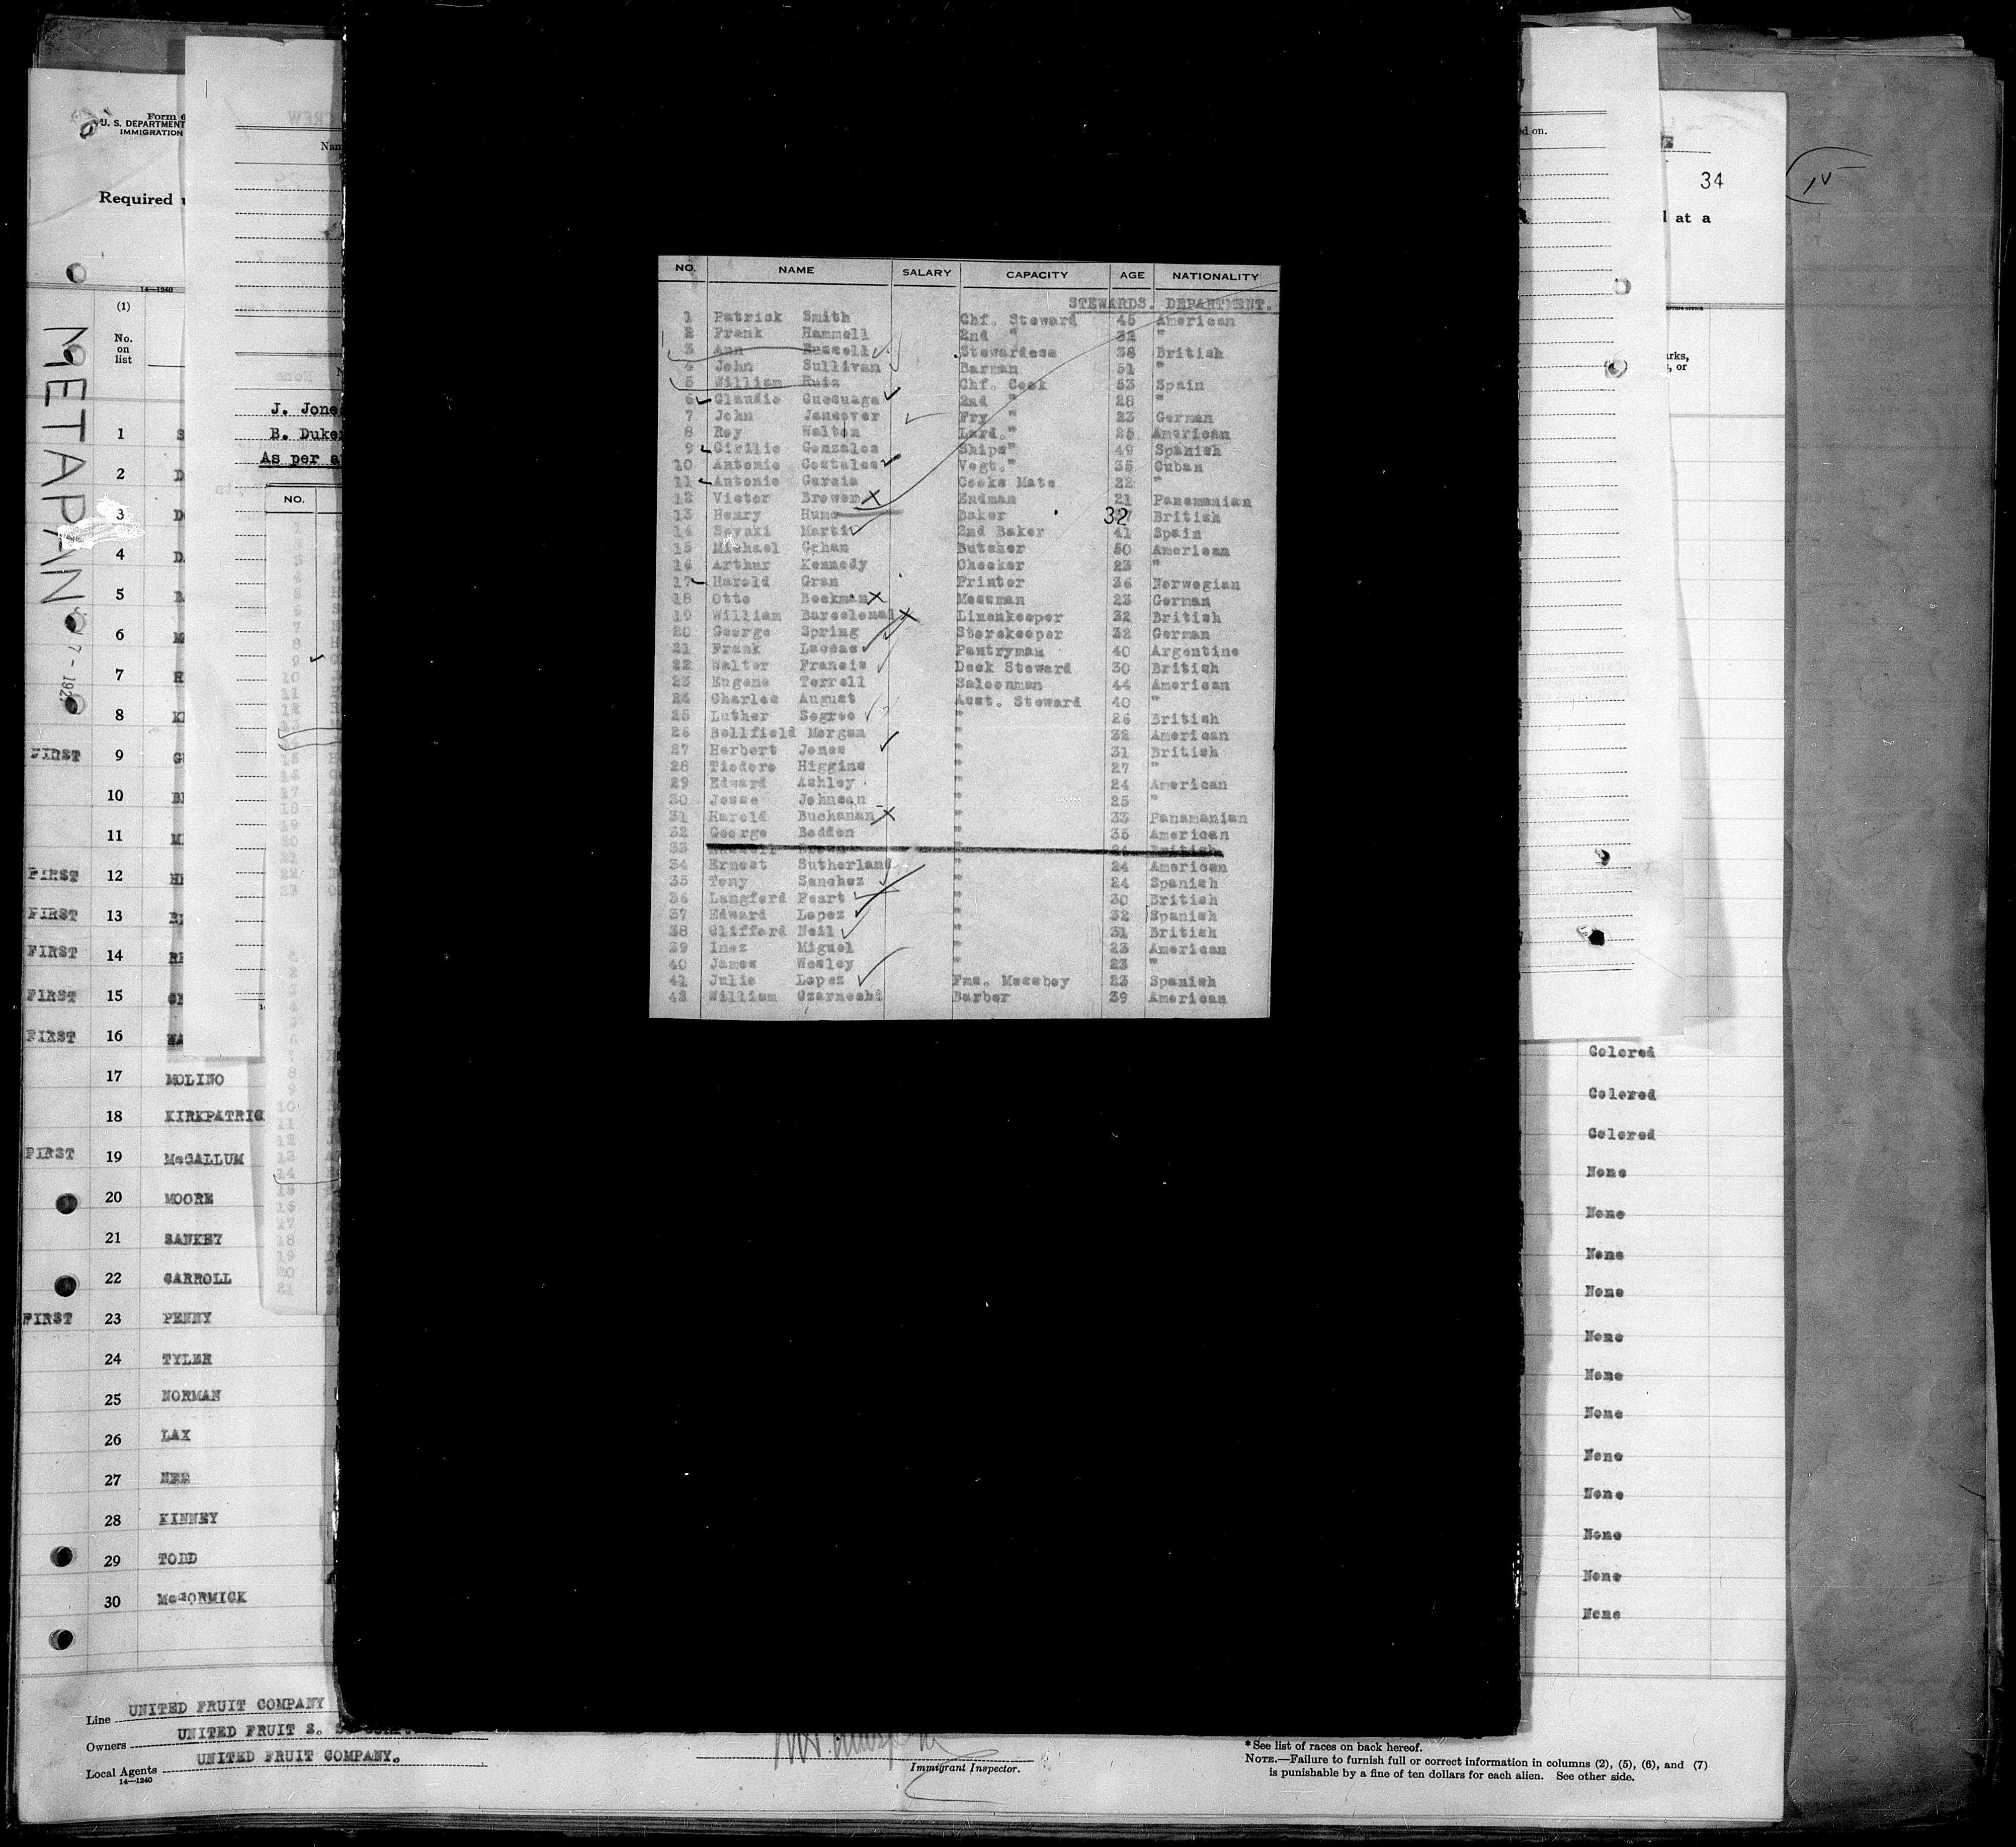 Form 6
U. S. DEPARTMENT
IMMIGRATION
Required
14—1240
(1)
No.
on
list
METAPAN
1
2
3
4
5
6
7
8
FIRST 9
10
11
FIRST 12
FIRST 13
FIRST 14
FIRST 15
FIRST 16
17 MOLINO
18 KIRKPATRIC
FIRST 19 McCALLUM
20 MOORE
21 SANKEY
22 CARROLL
FIRST 23 PENNY
24 TYLER
25 NORMAN
26 LAX
27 NEE
28 KINNEY
29 TODD
30 McCORMICK
Line UNITED FRUIT COMPANY
Owners UNITED FRUIT S.
Local Agents UNITED FRUIT COMPANY.
14—1240
J. Jone
B. Duke
As per a
NO.
NO. NAME SALARY CAPACITY AGE NATIONALITY
STEWARDS. DEPARTMENT.
1 Patrick Smith Chf. Steward 45 American
2 Frank Hammell 2nd " 32 "
3 Ann Russell Stewardess 38 British
4 John Sullivan Barman 51 "
5 William Ruiz Chf. Cook 53 Spain
6 Claudio Guesuaga 2nd " 28 "
7 John Janosver Fry " 23 German
8 Roy Walton Lard. " 25 American
9 Cirilio Gonzales Ships " 49 Spanish
10 Antonio Costales Vegt. " 35 Cuban
11 Antonio Garcia Cooks Mate 22 "
12 Victor Brower Endman 21 Panamanian
13 Henry Hume Baker 32 British
14 Marti 2nd Baker 41 Spain
15 Michael Gahan Butcher 50 American
16 Arthur Kennedy Checker 23 "
17 Harold Gran Printer 36 Norwegian
18 Otto Beckman Messman 23 German
19 William Barcelona Linenkeeper 32 British
20 George Spring Storekeeper 32 German
21 Frank Laccas Pantryman 40 Argentine
22 Walter Francis Deck Steward 30 British
23 Eugene Terrell Saloonman 44 American
24 Charles August Asst. Steward 40 "
25 Luther Segree " 26 British
26 Bellfield Morgan " 32 American
27 Herbert Jones " 31 British
28 Tiodore Higgins " 27 "
29 Edward Ashley " 24 American
30 Jesse Johnson " 25 "
31 Harold Buchanan " 33 Panamanian
32 George Bedden " 35 American
33 Brown " 24 British
34 Ernest Sutherland " 24 American
35 Tony Sanchez " 24 Spanish
36 Langford Peart " 30 British
37 Edward Lopez " 32 Spanish
38 Clifford Neil " 31 British
39 Inez Miguel " 23 American
40 James Wesley " 23 "
41 Julio Lopez Fms. Messboy 23 Spanish
42 William Czarneski Barber 39 American
Immigrant Inspector.
ed on.
34
l at a
Colored
Colored
Colored
None
None
None
None
None
None
None
None
None
None
None
None
* See list of races on back hereof.
NOTE.—Failure to furnish full or correct information in columns (2), (5), (6), and (7)
is punishable by a fine of ten dollars for each alien. See other side.